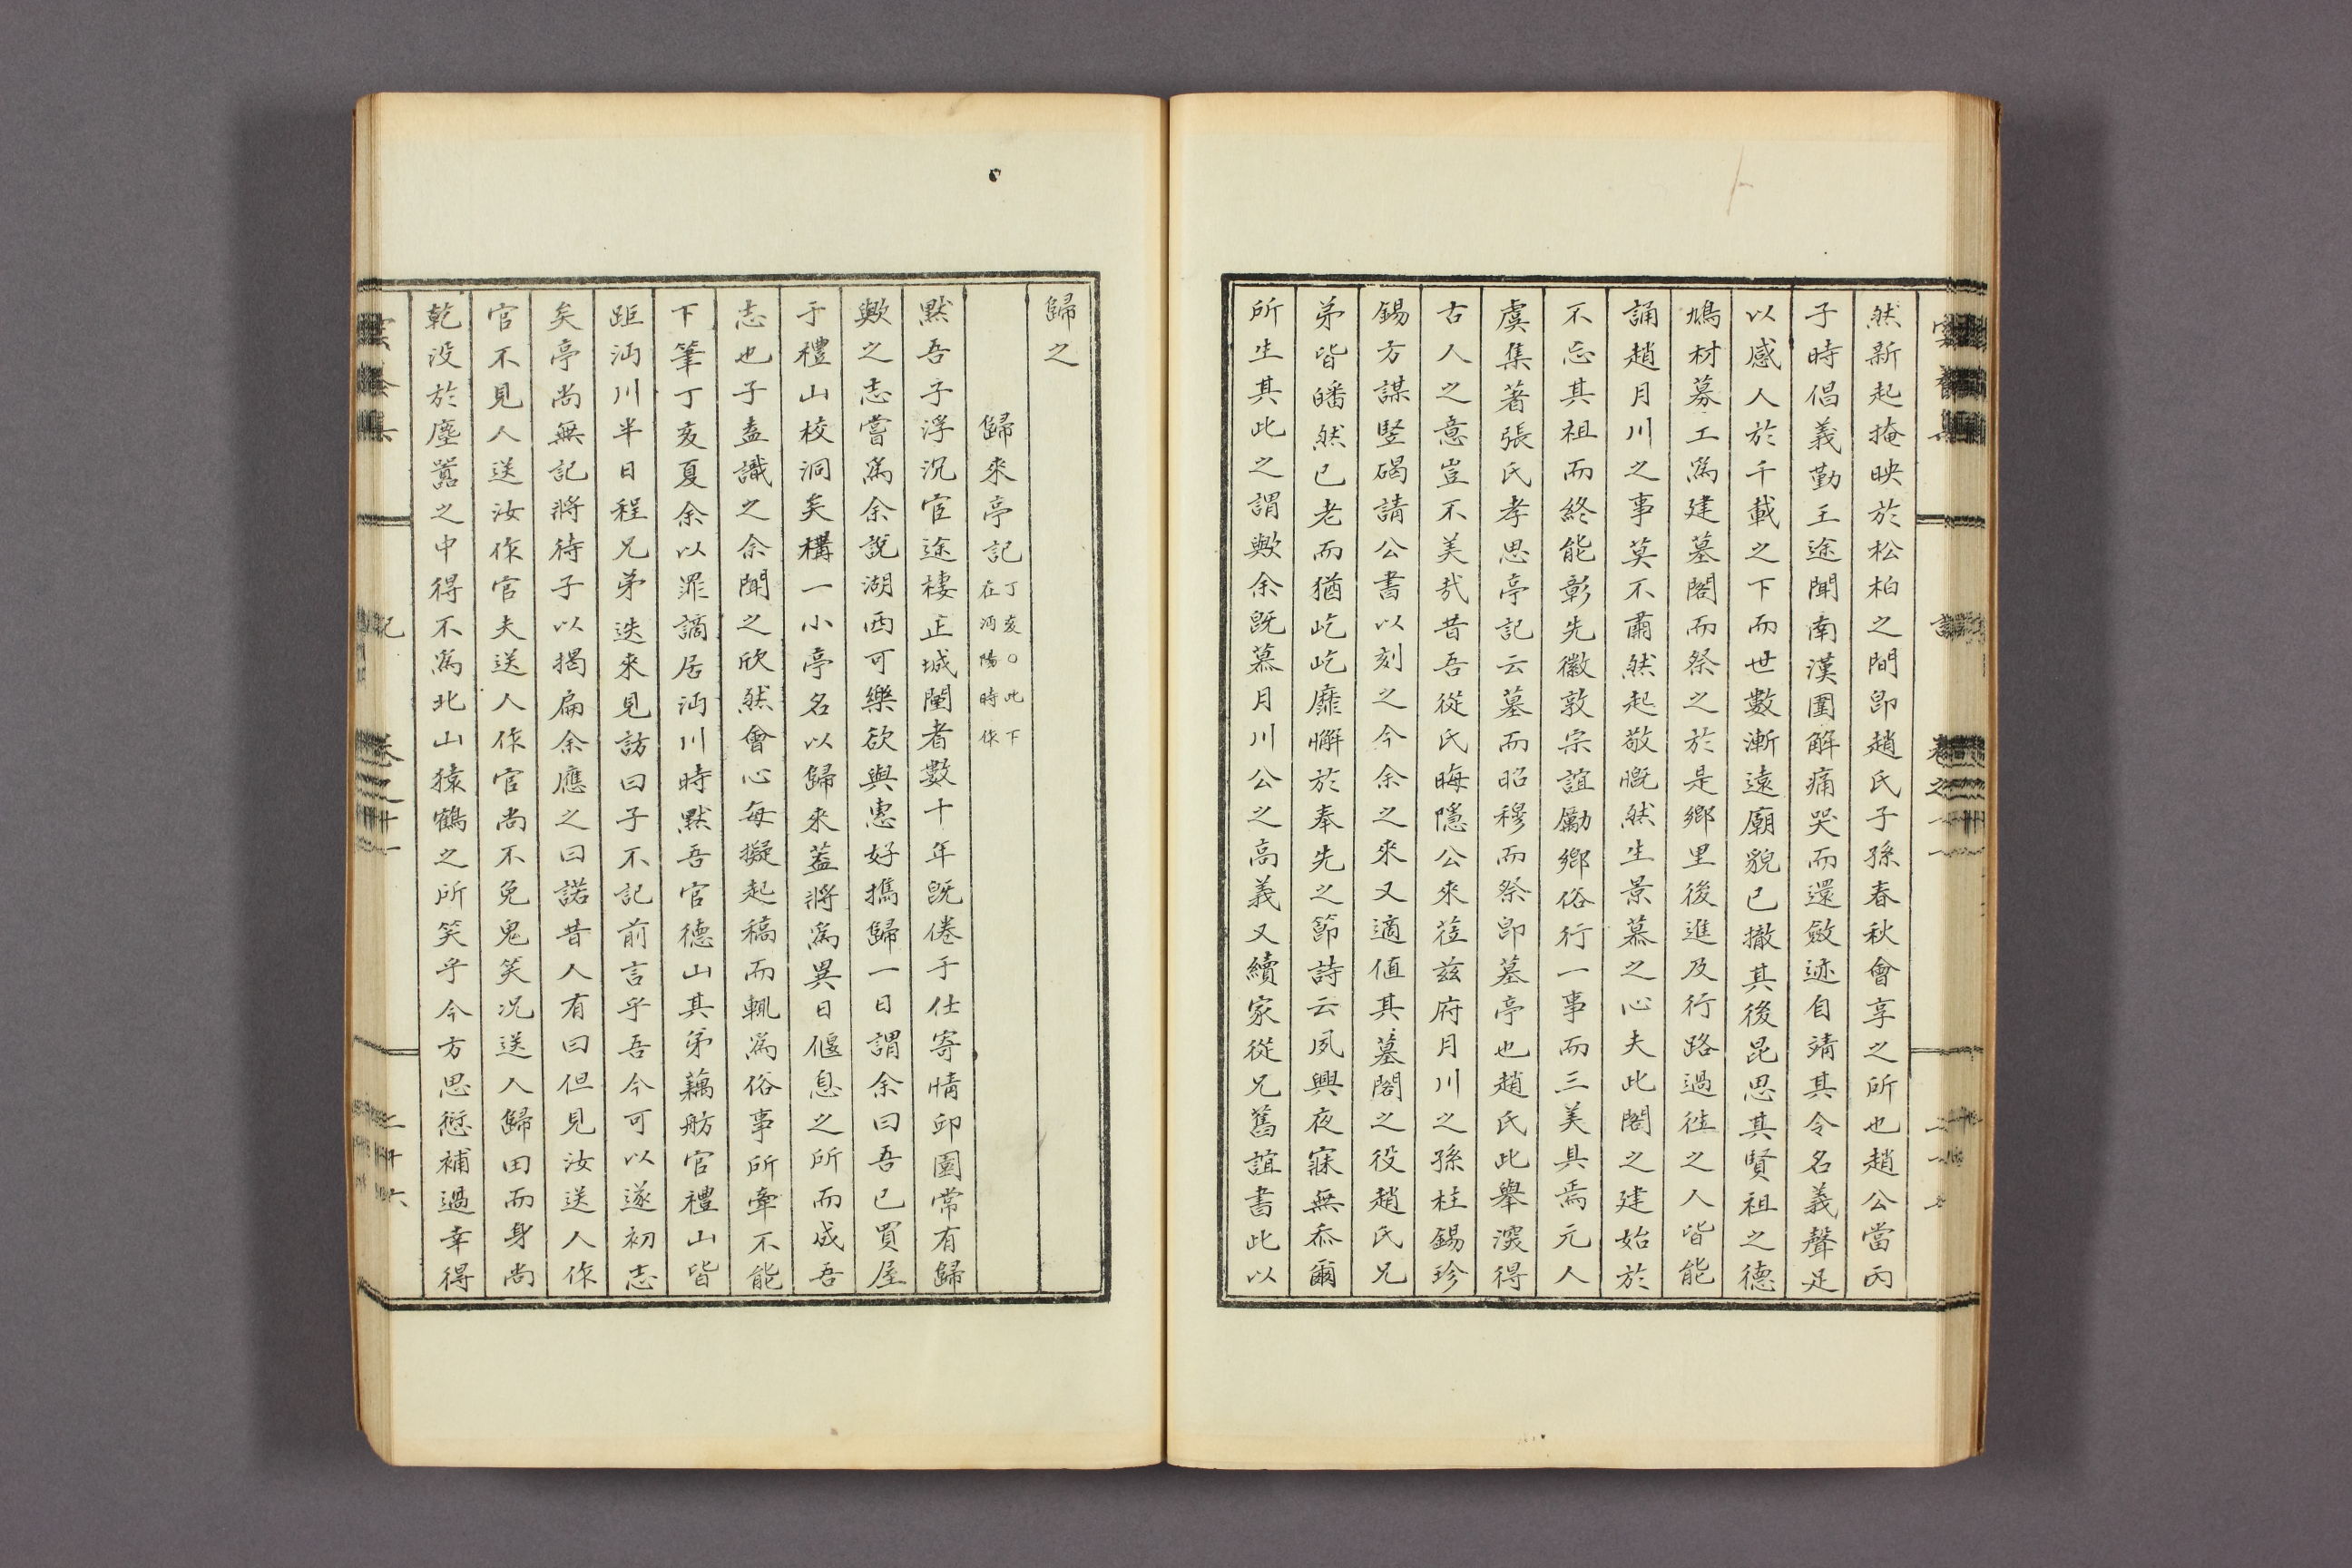 然新起掩映於松柏之間卽趙氏子孫春秋會享之所也趙公當丙
子時倡義勤王途聞南漢圍解痛哭而還斂迹自靖其令名義聲足
以感人於千載之下而世數漸遠廟貌已撤其後昆思其賢祖之德
鳩材募工爲建墓閣而祭之於是鄉里後進及行路過徃之人皆能
誦趙月川之事莫不肅然起敬慨然生景慕之心夫此閣之建始於
不忘其祖而終能彰先徽敦宗誼勵鄉俗行一事而三美具焉元人
虞集著張氏孝思亭記云墓而昭穆而祭卽墓亭也趙氏此擧深得
古人之意豈不美哉昔吾從氏晦隱公來莅玆府月川之孫柱錫珍
錫方謀竪碣請公書以刻之今余之來又適値其墓閣之役趙氏兄
弟皆皤然已老而猶屹屹靡懈於奉先之節詩云夙興夜寐無忝爾
所生其此之謂歟余旣慕月川公之高義又續家從兄舊誼書此以
歸之
歸來亭記 丁亥○此下在沔陽時作
默吾子浮沉宦途棲止城闉者數十年旣倦于仕寄情邱園常有歸
歟之志嘗爲余說湖西可樂欲與惠好攜歸一日謂余曰吾已買屋
于禮山校洞矣構一小亭名以歸來蓋將爲異日偃息之所而成吾
志也子盍識之余聞之欣然會心每擬起稿而輒爲俗事所牽不能
下筆丁亥夏余以罪謫居沔川時默吾官德山其弟藕舫官禮山皆
距沔川半日程兄弟迭來見訪曰子不記前言乎吾今可以遂初志
矣亭尙無記將待子以揭扁余應之曰諾昔人有曰但見汝送人作
官不見人送汝作官夫送人作官尙不免鬼笑况送人歸田而身尙
乾没於塵囂之中得不爲北山猿鶴之所笑乎今方思愆補過幸得
記